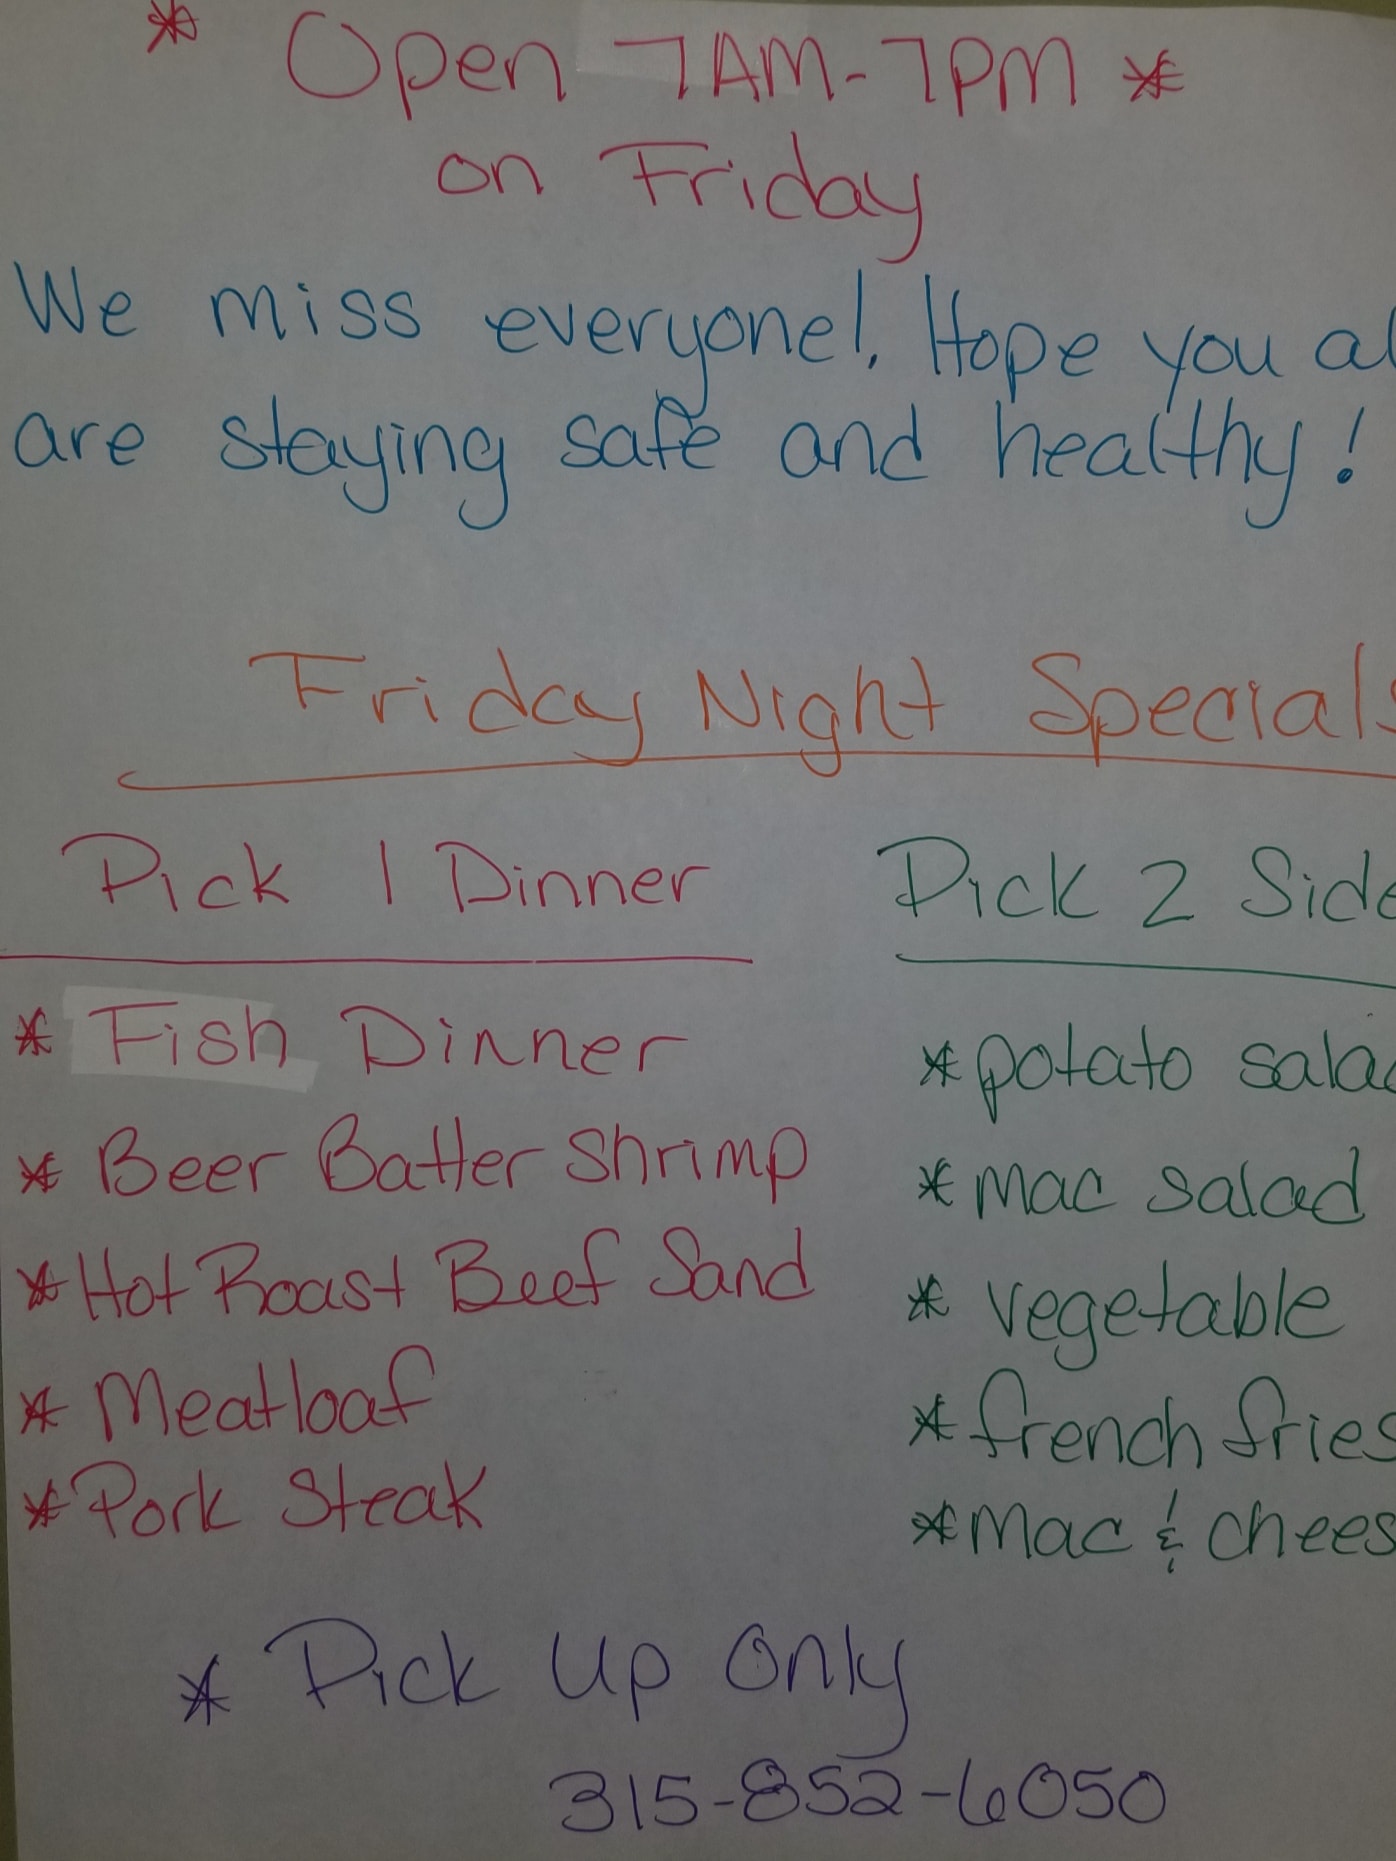 * Open 7AM-7PM *
on Friday
We miss everyone!. Hope you al
are staying safe and healthy!
Friday Night Specials
Pick 1 Dinner
* Fish Dinner
* Beer Batter Shrimp
* Hot Roast Beef Sand
* Meatloaf
* Pork Steak
Pick 2 Side
* potato salad
* mac salad
* vegetable
* french fries
* mac & chees
* Pick Up Only
315-852-6050